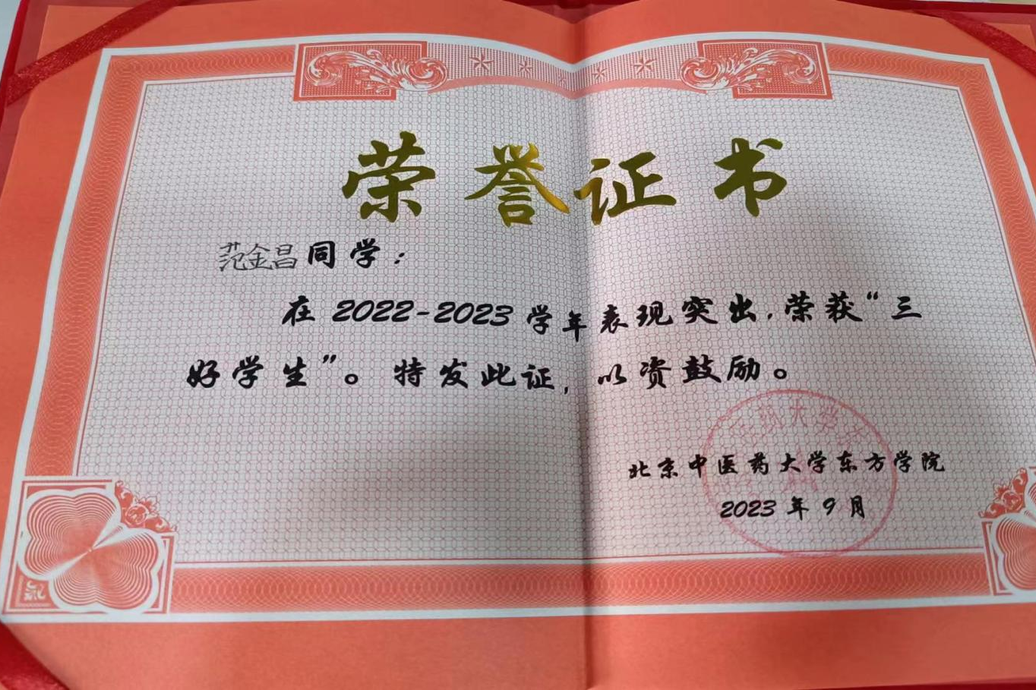 荣誉证书
范金昌同学：
在 2022-2023 学年表现突出，荣获“三
好学生”。特发此证，以资鼓励。
北京中医药大学东方学院
2023 年 9 月